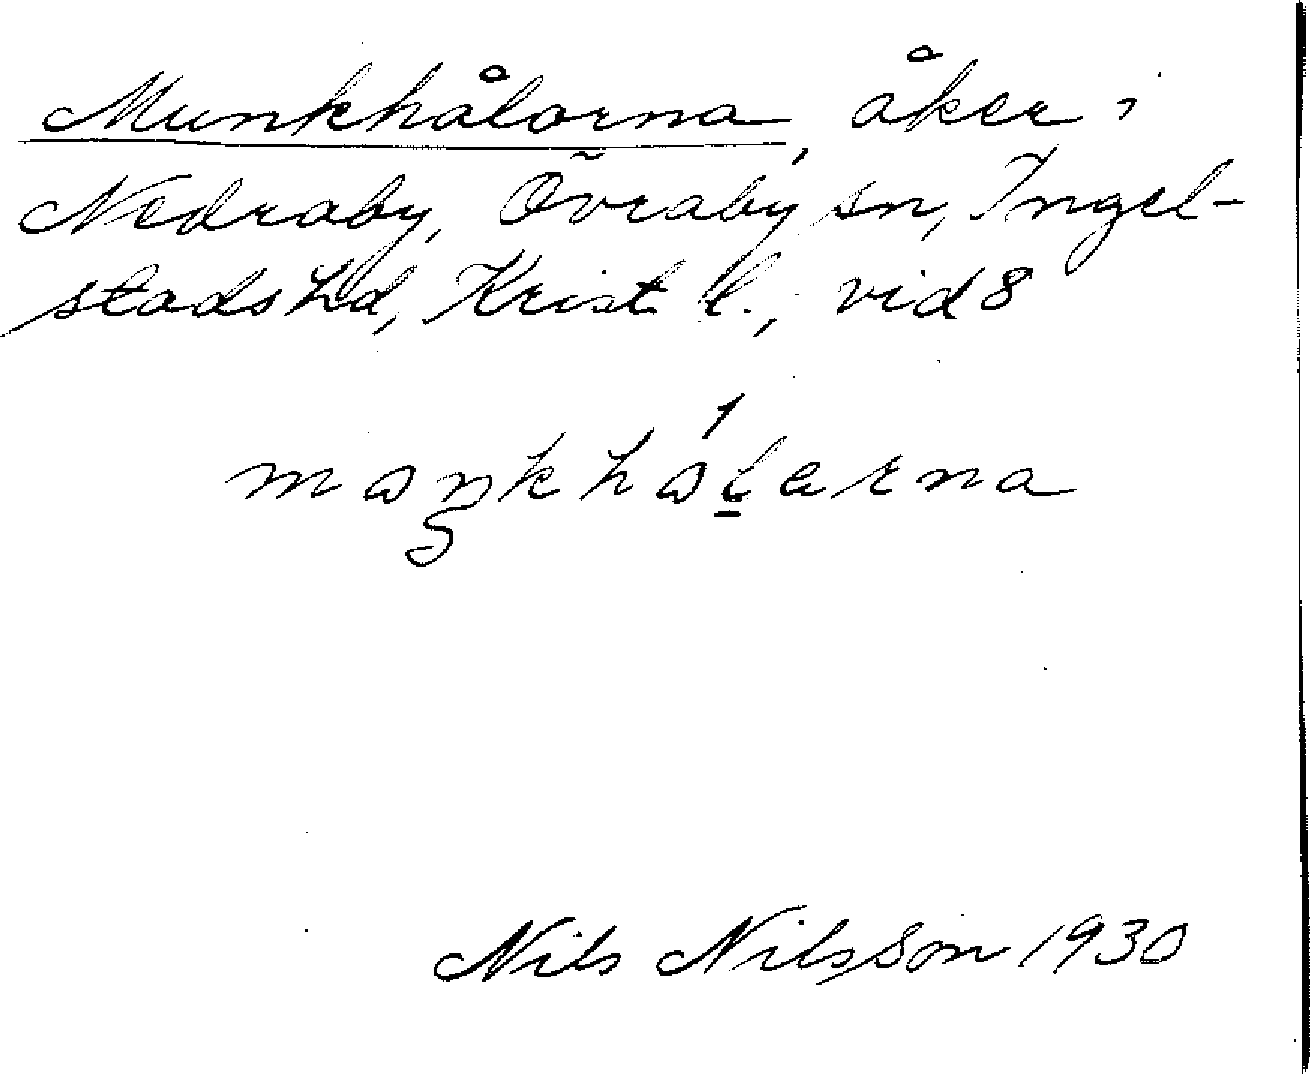 Munkhålorna, åker i
Nedraby, Övraby sn, Ingel-
stads hd, Krist. l., vid 8
Nils Nilsson 1930